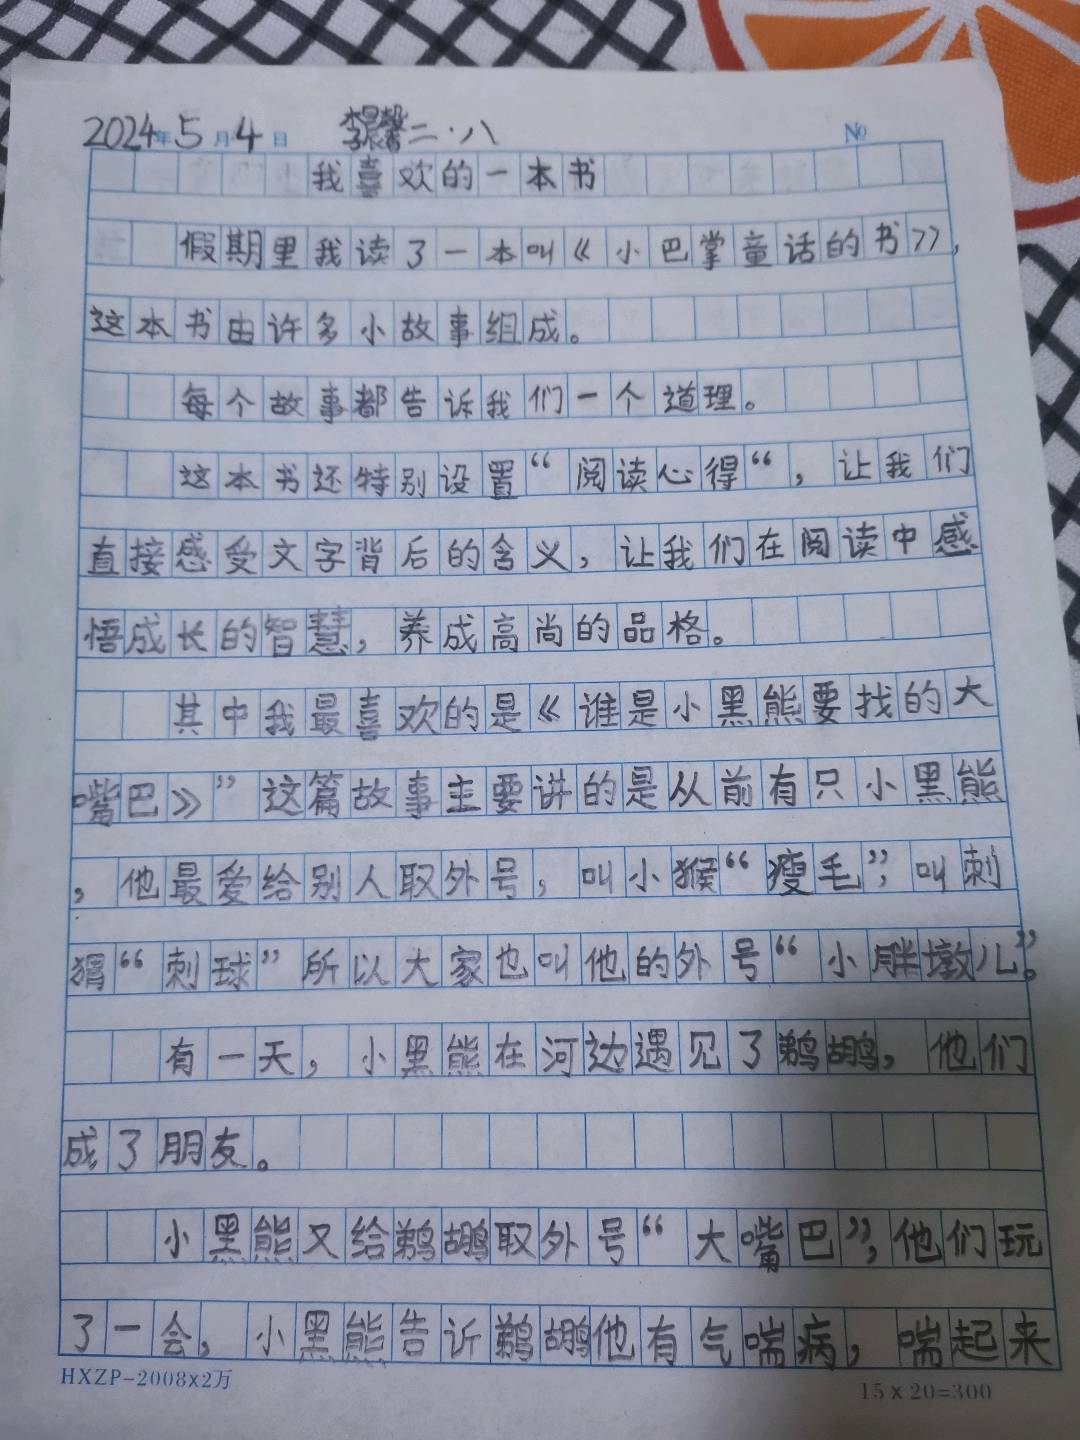 2024年5月4日 李晨馨二·八 №
我喜欢的一本书
假期里我读了一本叫《小巴掌童话的书》,
这本书由许多小故事组成。
每个故事都告诉我们一个道理。
这本书还特别设置“阅读心得“，让我们
直接感受文字背后的含义，让我们在阅读中感
悟成长的智慧，养成高尚的品格。
其中我最喜欢的是《谁是小黑熊要找的大
嘴巴》”这篇故事主要讲的是从前有只小黑熊
，他最爱给别人取外号，叫小猴“瘦毛”，叫刺
猬“刺球”所以大家也叫他的外号“小胖墩儿”。
有一天，小黑熊在河边遇见了鹈鹕，他们
成了朋友。
小黑熊又给鹈鹕取外号“大嘴巴”，他们玩
了一会，小黑熊告诉鹈鹕他有气喘病，喘起来
HXZP-2008×2万 15×20=300